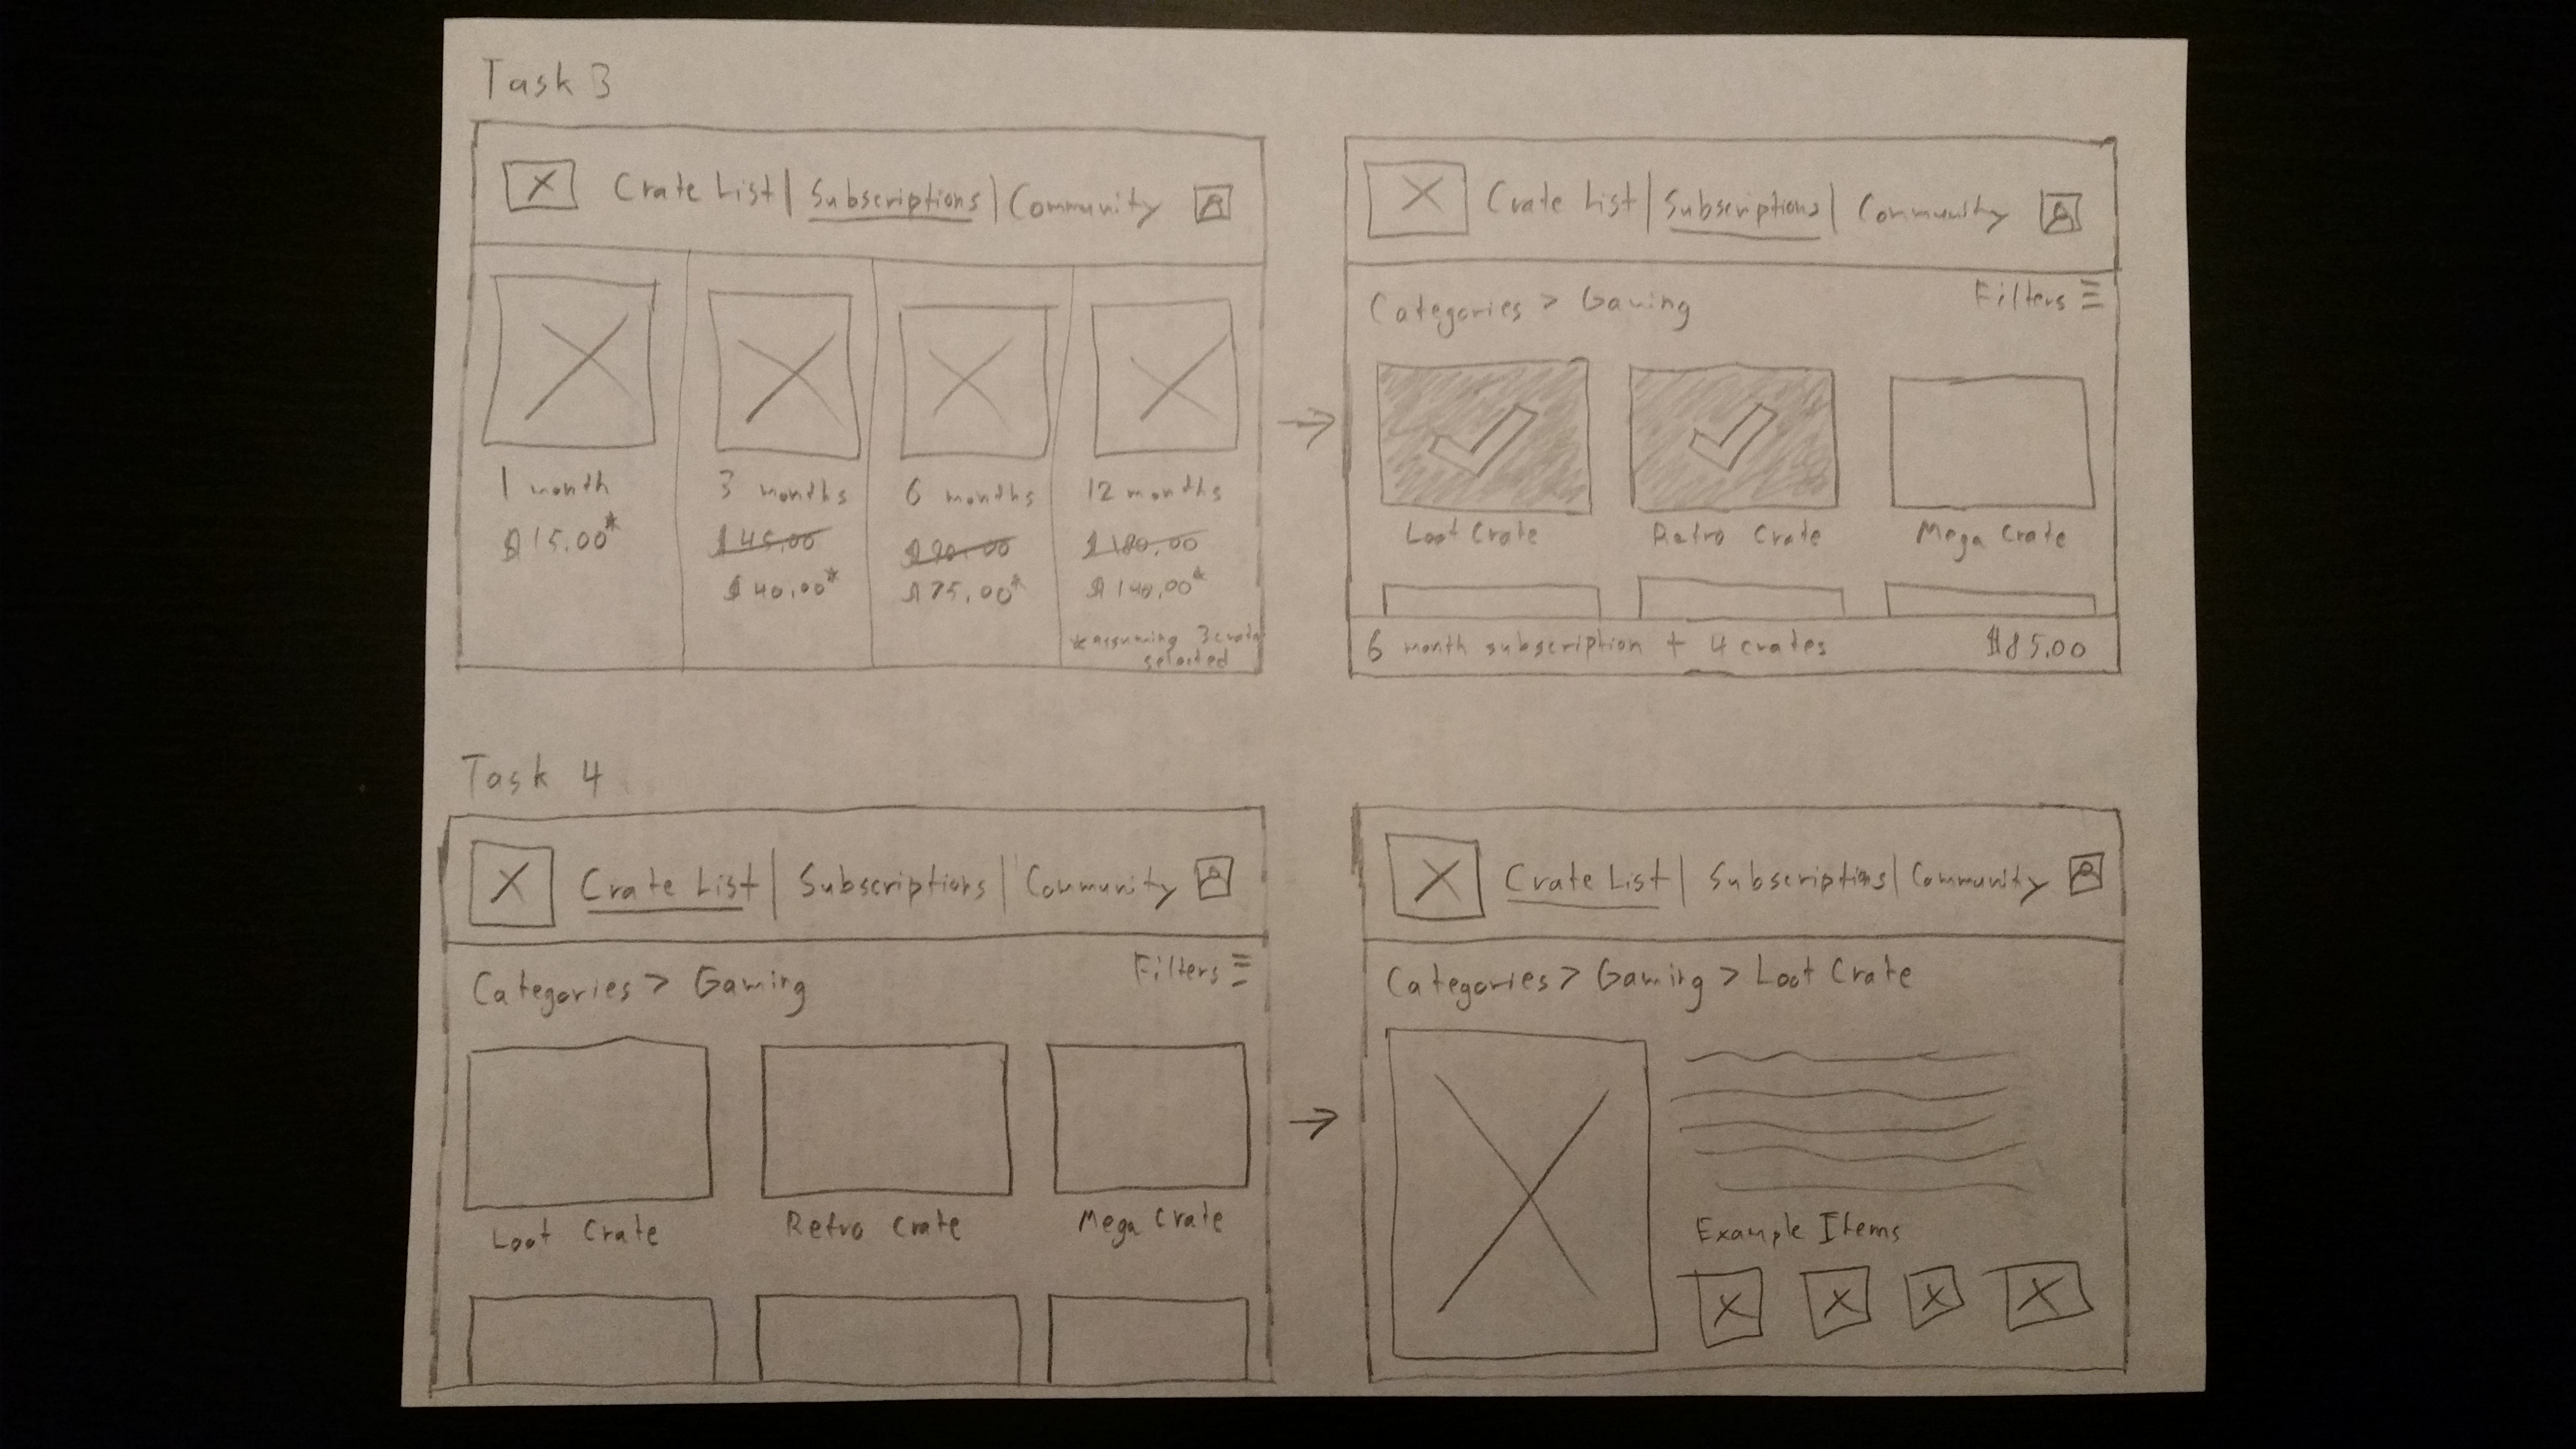 Task 3
Crate List | Subscriptions | Community
1 month
$15.00*
3 months
$45.00
$40.00*
6 months
$90.00
$75.00*
12 months
$180.00
$140.00*
*assuming 3 crates
selected
Crate List | Subscriptions | Community
Categories > Gaming
Filters
Loot Crate
Retro Crate
Mega Crate
6 month subscription + 4 crates $85.00
Task 4
Crate List | Subscriptions | Community
Categories > Gaming
Filters
Loot Crate
Retro Crate
Mega Crate
Crate List | Subscriptions | Community
Categories > Gaming > Loot Crate
Example Items